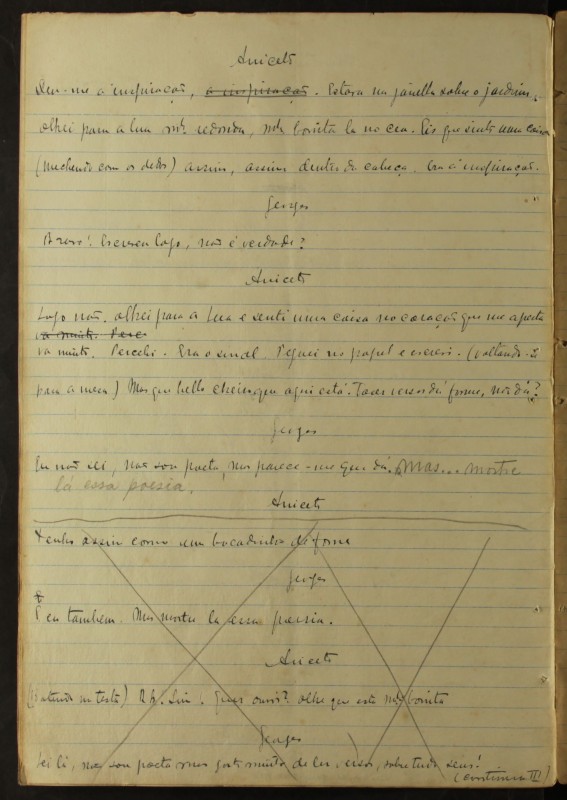 Aniceto
Deu-me a inspiração, a inspiração. Estava na janella sobre o jardim,
olhei para a lua mto redonda, mto bonita la no ceu. Eis que sinto uma coisa
(mechendo com os dedos) assim, assim dentro da cabeça. Era a inspiração.
Georges
Bravo! Escreveu logo, não é verdade?
Aniceto
Logo não. Olhei para a lua e senti uma coisa no coração que me aperta
va muito. Perce
va muito. Percebi. Era o sinal. Peguei no papel e escrevi. (voltando-se
para a mesa) Mas que bello cheiro que aqui está. Fazer versos dá fome, não dá?
Georges
Eu não sei, não sou poeta, mas parece-me que dá. Mas... mostre
lá essa poesia.
Aniceto
Tenho assim como um bocadinho de fome
Georges
E eu tambem. Mas mostre la essa poesia.
Aniceto
(batendo na testa) Ah. Sim. Quer ouvir? Olhe que está mto bonita
Georges
Sei lá, não sou poeta mas gosto muito de ler versos, sobretudo seus!
(continua II)